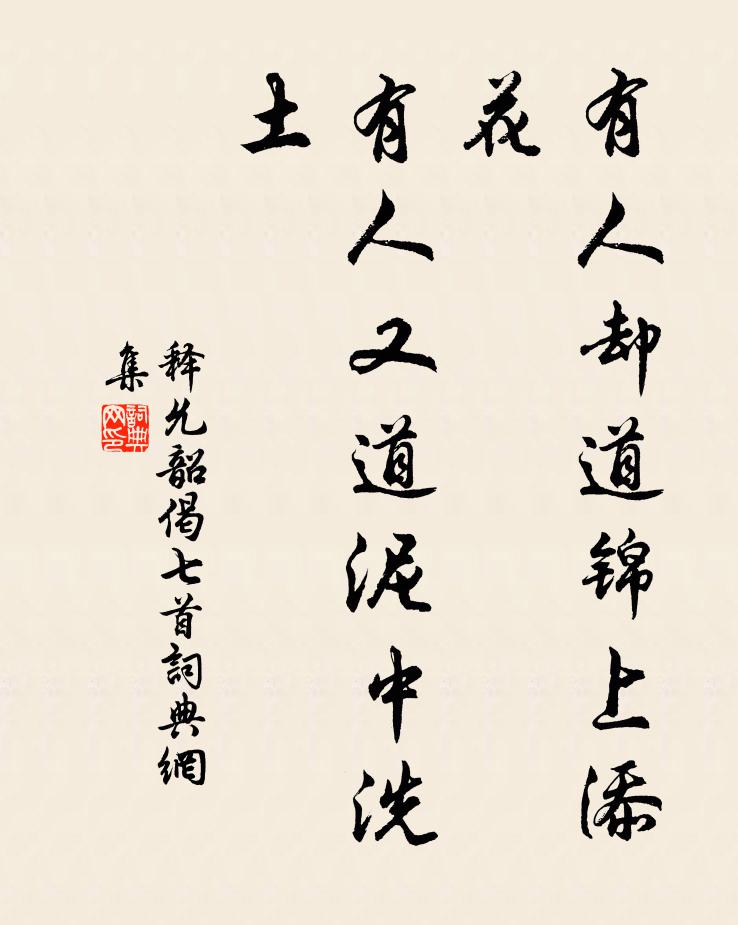 有人却道锦上添
花
有人又道泥中洗
土
释允韶偈七首詞典網
集
詞典
网印